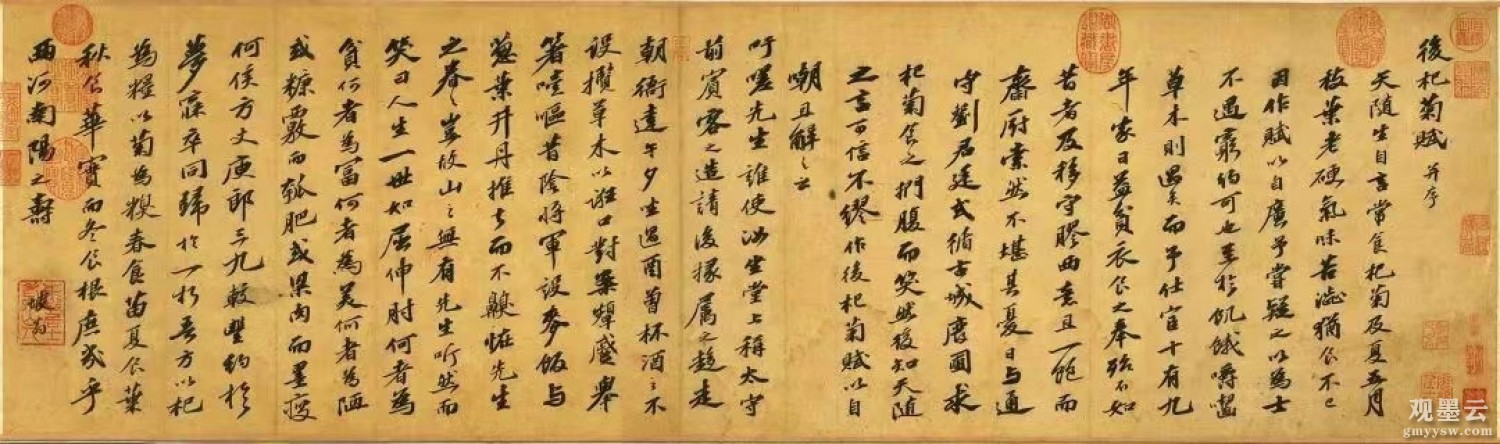 後杞菊賦 并序
天隨生自言常食杞菊及夏五月
枝葉老硬氣味苦澀猶食不已
因作賦以自廣予嘗疑之以為士
不遇窮約可也至於飢餓嚼齧
草木則過矣而予仕宦十有九
年家日益貧衣食之奉殆不如
昔者及移守膠西意且一飽而
齋厨索然不堪其憂日與通
守劉君廷式循古城廢圃求
杞菊食之捫腹而笑然後知天隨
之言可信不繆作後杞菊賦以自
嘲且解之云
吁嗟先生誰使汝坐堂上稱太守
前賓客之造請後掾屬之趨走
朝衙達午夕坐過酉曾杯酒之不
設攬草木以誑口對案顰蹙舉
箸噎嘔昔陰將軍設麥飯與
葱葉井丹推去而不齅怪先生
之眷〻豈故山之無有先生听然而
笑曰人生一世如屈伸肘何者為
貧何者為富何者為美何者為陋
或糠覈而瓠肥或粱肉而墨瘦
何侯方丈庾郎三九較豐約於
夢寐卒同歸於一朽吾方以杞
為糧以菊為糗春食苗夏食葉
秋食華實而冬食根庶幾乎
西河南陽之壽
观墨云
gmyysw.com